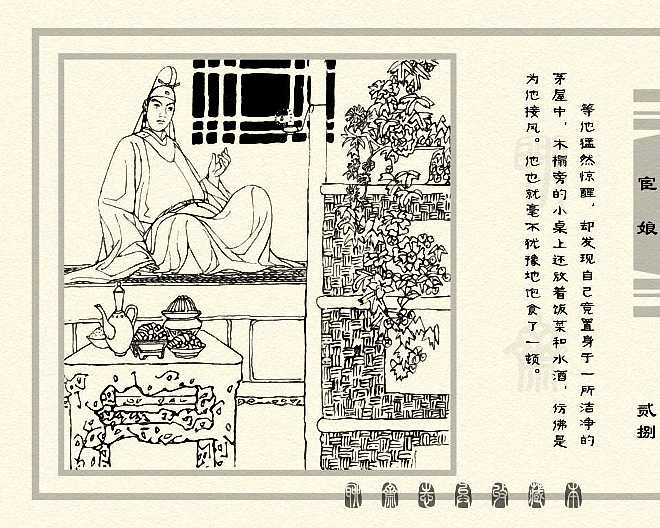 等他猛然惊醒，却发现自己竟置身于一所洁净的
茅屋中，木榻旁的小桌上还放着饭菜和水酒，仿佛是
为他接风。他也就毫不犹豫地饱食了一顿。
宦娘
贰捌